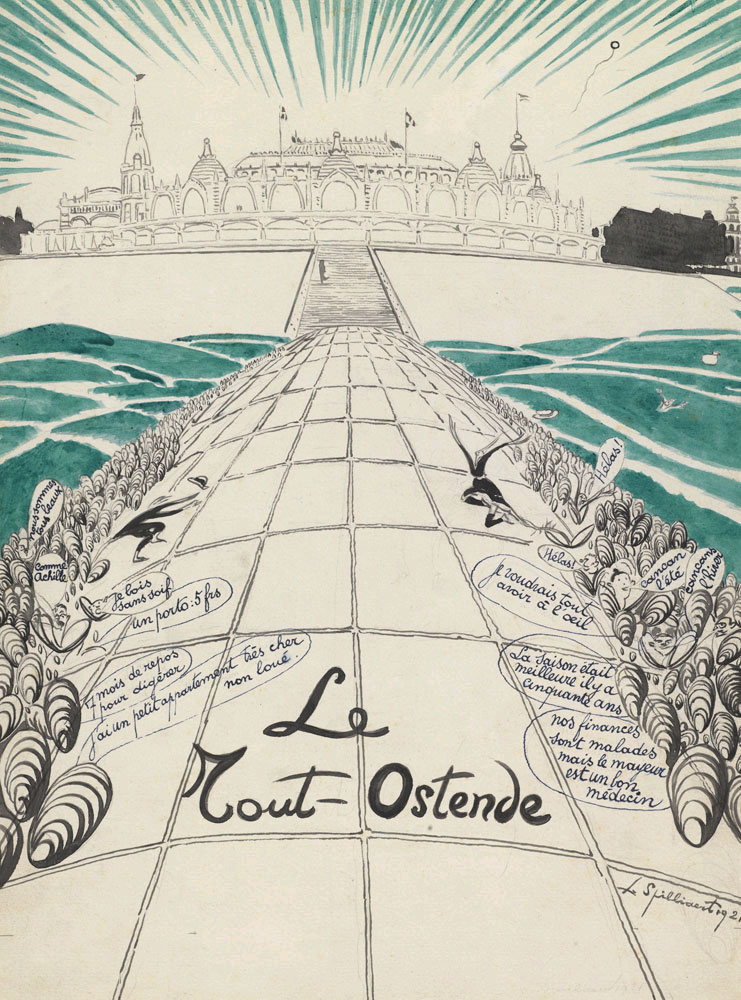 Hélas!
nous sommes
tous beaux
comme
Achille
Hélas!
cancan
l'été
cancans
hiver
je bois
sans soif
un porto: 5 frs
je voudrais tout
avoir à l'oeil
7 mois de repos
pour digérer
j'ai un petit appartement très cher
non loué.
La saison était
meilleure il y a
cinquante ans
nos finances
sont malades
mais le mayeur
est un bon
médecin
Le
Tout-Ostende
L Spilliaert 1921